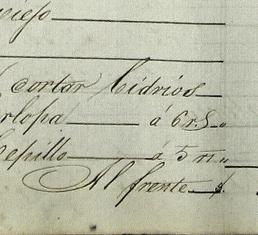 cortar Vidrios
rlopa á 6 rs „
epillo á 5 rs „
Al frente $